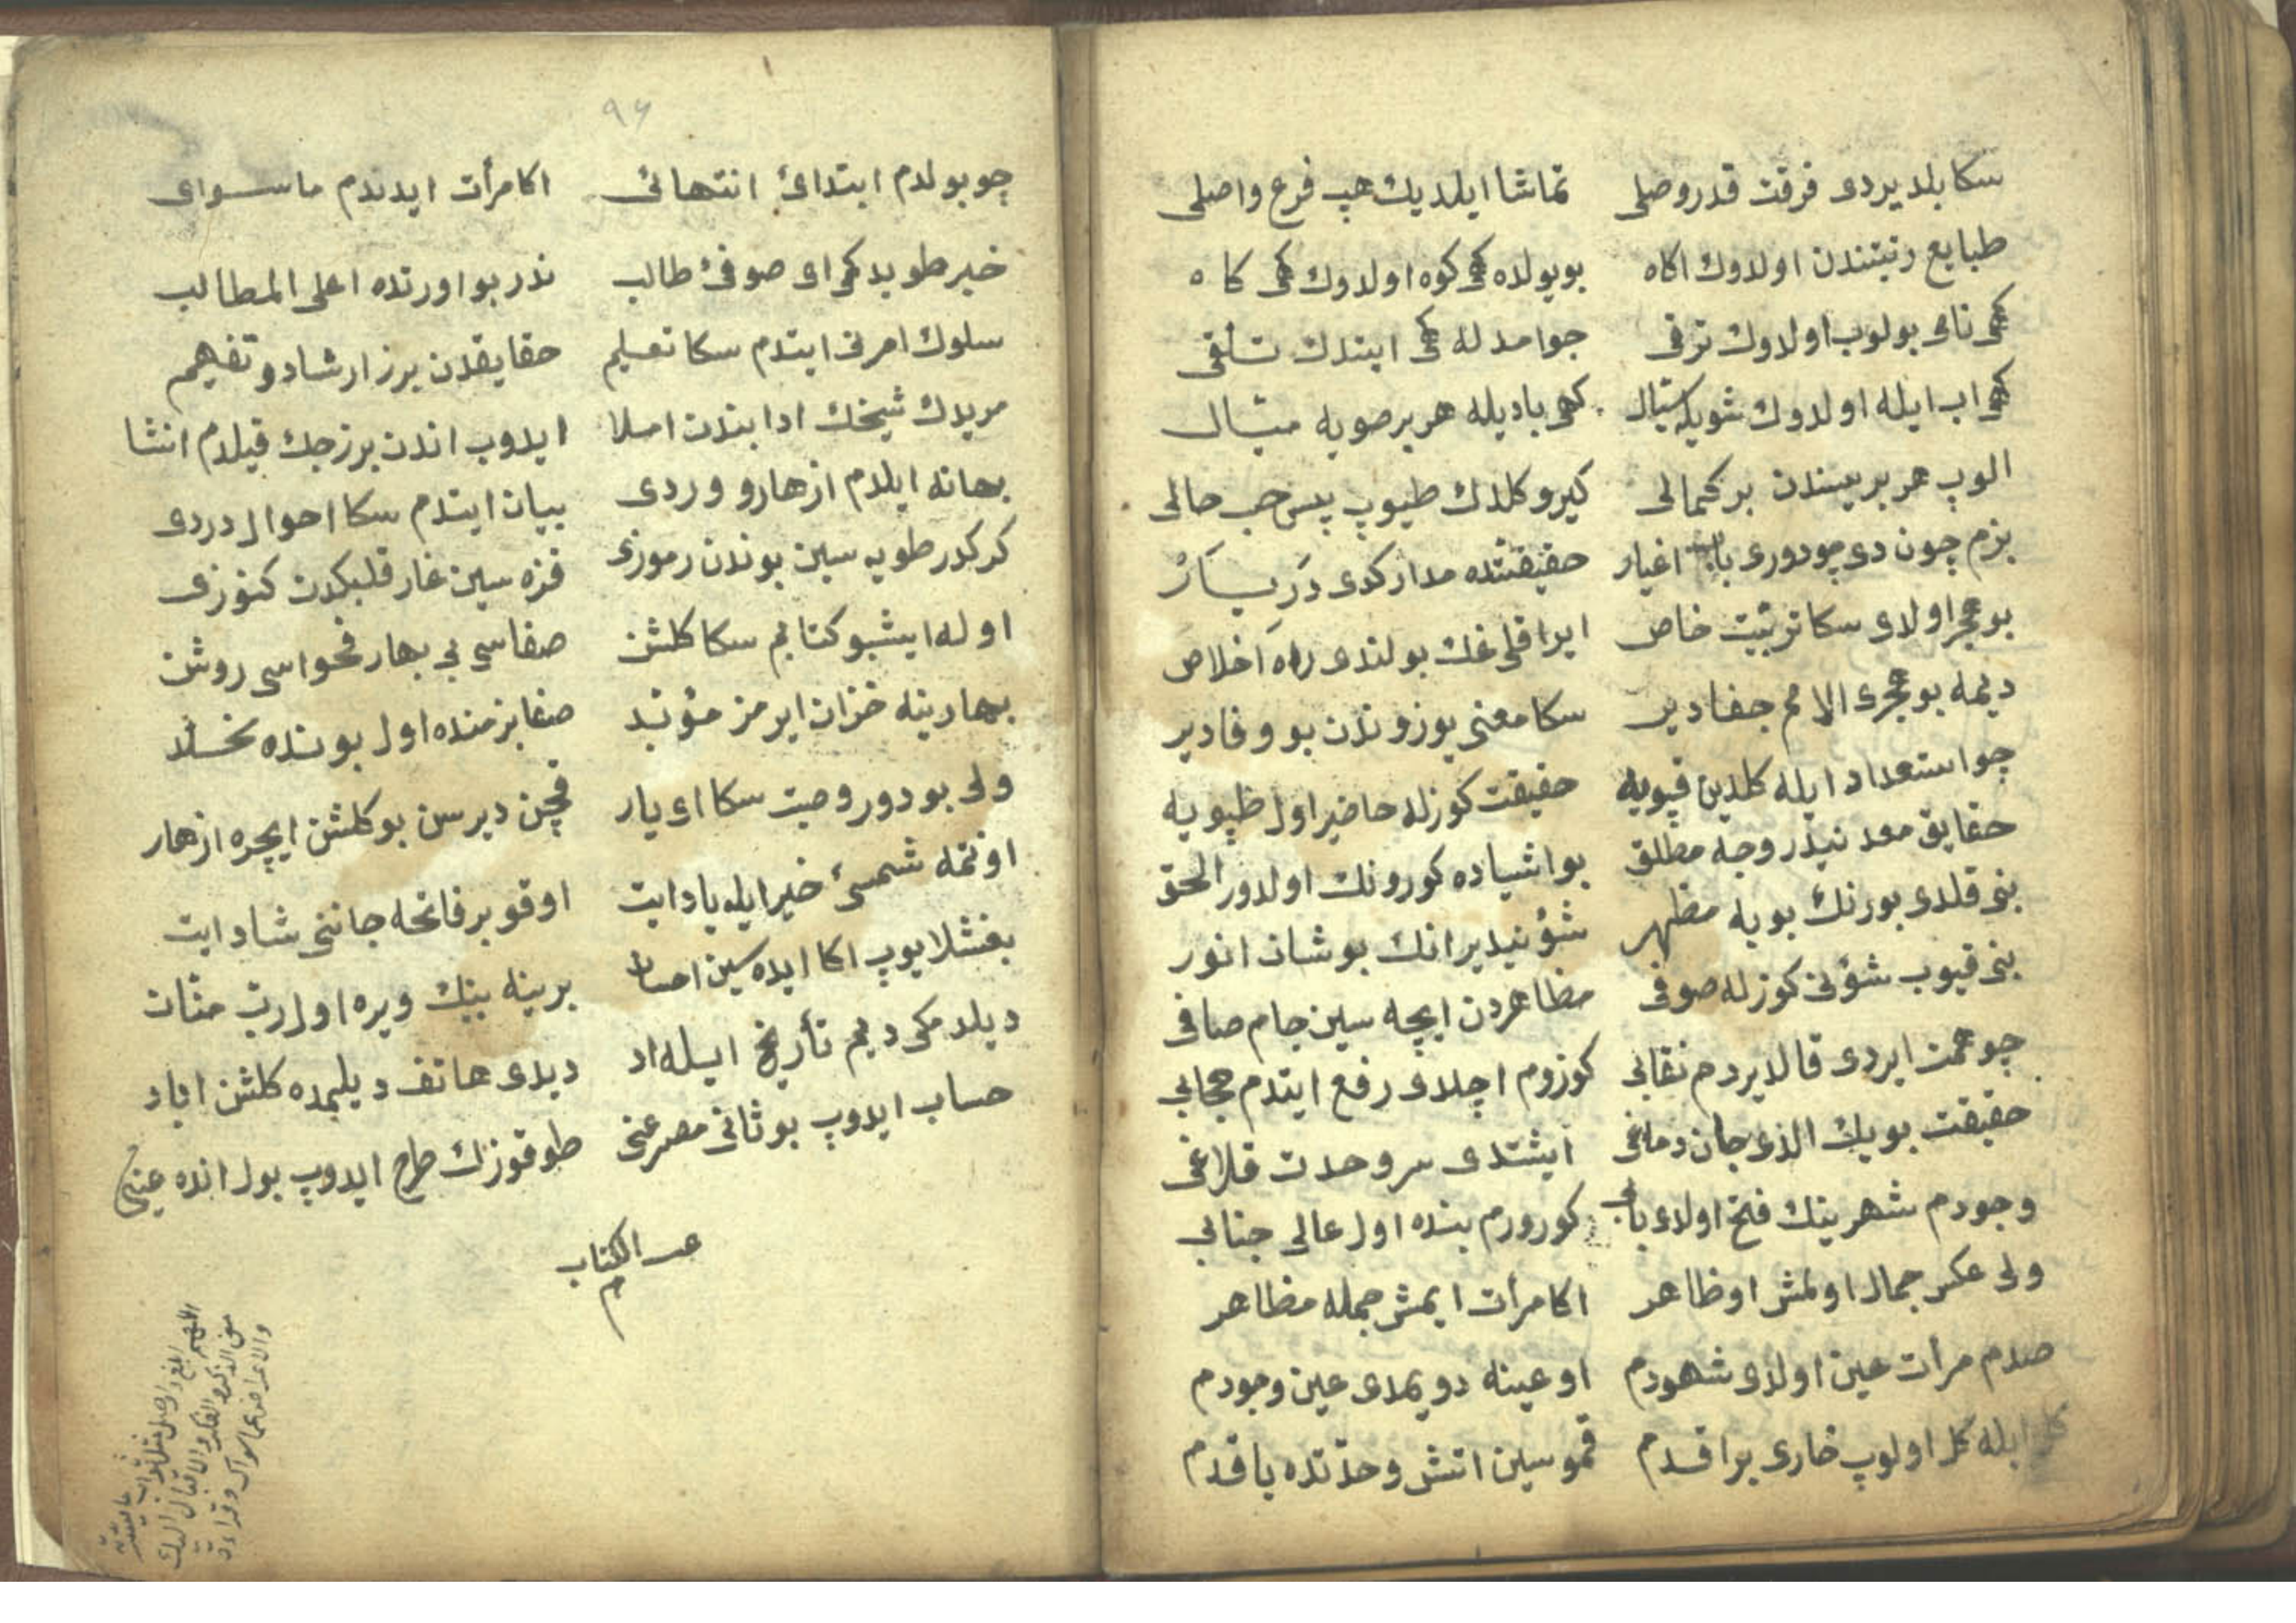 سكا بلديردى فرقت قدر وصلى تماشا ايلديك هپ فرع واصلى
طبايع رتبتندن اولدوك اكاه بويولده كهى كوه اولدوك كهى كاه
كهى نامى بولوب اولدوك ترقى جوامدله كهى ايتدك تلقى
كهى اب ايله اولدوك شويله سيال كهى باديله هر بر صويه ميال
الوپ هر بريسندن بر كمالى كيرو كلدك طيوپ پس حسب حالى
بزم چون دى چودورى اغيار حقيقتده مدار كدى در يار
بو هجر اولدى سكا تربيت خاص ايراقلغك بولندى راه اخلاص
ديمه بو هجرى الامم جفادير سكا معنى يوزوندن بو وفادير
چو استعداد ايله كلدين قپويه حقيقت كوزله حاضر اول طپويه
حقايق معدنيدر وجه مطلق بو اشياده كورونك اولدور الحق
بنى قلدى بورنك بويه مظهر شؤنيدير انك بو شان انور
بنى قيوب شؤنى كوزله صوفى مظاهردن ايچه سين جام صافى
چو همت ايردى قالديردم نقابى كوزوم اچلدى رفع ايتدم حجابى
حقيقت بويك الدى جان دماغى ايشتدى سر وحدت قلاغى
وجودم شهرينك فتح اولدى بابى كورورم بنده اول عالى جنابى
ولى عكس جمال اولمش او ظاهر اكا مرأت ايمش جمله مظاهر
صدم مرأت عين اولدى شهودم او عينه دويمدى عين وجودم
كل ايله كل اولوپ خارى براقدم قموسين اتش وحدتده ياقدم
٩٦
چو بولدم ابتدائ انتهائى اكا مرأت ايدندم ماسواى
خبر طويدكمى اى صوفئ طالب ندر بو اورتده اعلى المطالب
سلوك امرنى ايتدم سكا تعليم حقايقدن برز ارشاد و تفهيم
مريدك شيخك ادابندن املا ايدوب اندن برزجك قيلدم انشا
بهانه ايلدم ازهار و وردى بيان ايتدم سكا احوال دردى
كركدر طويه سين بوندن رموزى قزه سين غار قلبكدن كنوزى
اوله ايشبو كتابم سكا كلشن صفاسى بى بهار فحواسى روشن
بهارينه خزان ايرمز مؤبد صفا بزمنده اول بونده مخلد
ولى بودور وصيت سكا اى يار قچن ديرسن بو كلشن ايچره ازهار
اونتمه شمسئ خير ايله ياد ايت اوقو بر فاتحه جاننى شاد ايت
بغشلايوپ اكا ايده سين احسان برينه بينك ويره اول رب منان
ديلدمكى ديم تأريخ ايله اد ديدى هاتف ديلمده كلشن اباد
حساب ايدوپ بو ثانى مصرعنى طوقوزك طرح ايدوپ بول انده عينى
الكتاب
م